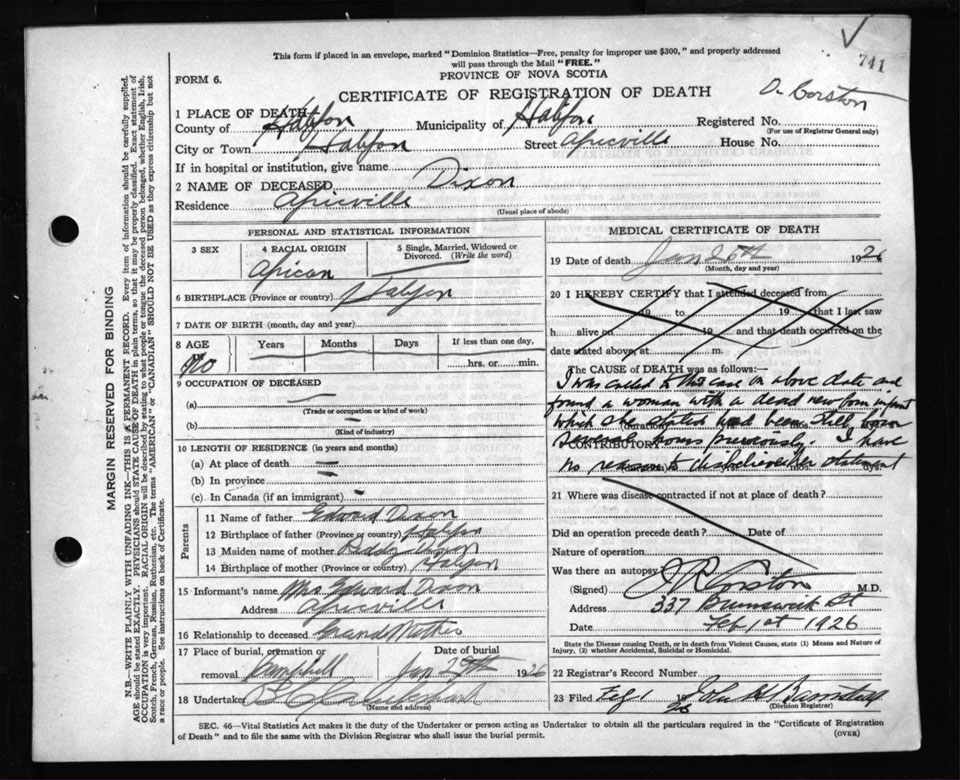 741
This form if placed in an envelope, marked "Dominion Statistics—Free, penalty for improper use $300," and properly addressed
will pass through the Mail "FREE."
FORM 6.
PROVINCE OF NOVA SCOTIA
CERTIFICATE OF REGISTRATION OF DEATH
1 PLACE OF DEATH
County of Halifax Municipality of Halifax Registered No.
(For use of Registrar General only)
City or Town Halifax Street Africville House No.
If in hospital or institution, give name
2 NAME OF DECEASED Dixon
Residence Africville
(Usual place of abode)
PERSONAL AND STATISTICAL INFORMATION
3 SEX
4 RACIAL ORIGIN
African
5 Single, Married, Widowed or
Divorced. (Write the word)
6 BIRTHPLACE (Province or country) Halifax
7 DATE OF BIRTH (month, day and year)
8 AGE
Years Months Days If less than one day,
hrs. or min.
9 OCCUPATION OF DECEASED
(a)
(Trade or occupation or kind of work)
(b)
(Kind of industry)
10 LENGTH OF RESIDENCE (in years and months)
(a) At place of death
(b) In province
(c) In Canada (if an immigrant)
Parents
11 Name of father Edward Dixon
12 Birthplace of father (Province or country) Halifax
13 Maiden name of mother Dixon
14 Birthplace of mother (Province or country) Halifax
15 Informant's name Mrs Edward Dixon
Address Africville
16 Relationship to deceased Grand Mother
17 Place of burial, cremation or Date of burial
removal Jan 29th 1926
18 Undertaker
(Name and address)
MEDICAL CERTIFICATE OF DEATH
19 Date of death Jan 26th 1926
(Month, day and year)
20 I HEREBY CERTIFY that I attended deceased from
19 to 19 that I last saw
h alive on 19 and that death occurred on the
date stated above, at m.
The CAUSE of DEATH was as follows:—
I was called to this case on above date and
found a woman with a dead new born infant
which she stated had been still born
(duration)
several hours previously. I have
CONTRIBUTORY
no reason to disbelieve her statement
21 Where was disease contracted if not at place of death?
Did an operation precede death? Date of
Nature of operation
Was there an autopsy
(Signed) Corston M.D.
Address 337 Brunswick St
Date Feb 1st 1926
State the Disease causing Death, or in death from Violent Causes, state (1) Means and Nature of
Injury, (2) whether Accidental, Suicidal or Homicidal.
22 Registrar's Record Number
23 Filed Feb 1 19 26 John H
(Division Registrar)
SEC. 46—Vital Statistics Act makes it the duty of the Undertaker or person acting as Undertaker to obtain all the particulars required in the "Certificate of Registration
of Death" and to file the same with the Division Registrar who shall issue the burial permit.
(OVER)
MARGIN RESERVED FOR BINDING
N.B.—WRITE PLAINLY WITH UNFADING INK—THIS IS A PERMANENT RECORD. Every item of information should be carefully supplied.
AGE should be stated EXACTLY. PHYSICIANS should STATE CAUSE OF DEATH in plain terms, so that it may be properly classified. Exact statement of
OCCUPATION is very important. RACIAL ORIGIN will be described by stating to what people or tongue the deceased person belonged, whether English, Irish,
Scotch, French, German, Russian, Ruthenian, etc. The terms "AMERICAN" or "CANADIAN" SHOULD NOT BE USED as they express citizenship but not
a race or people. See instructions on back of Certificate.